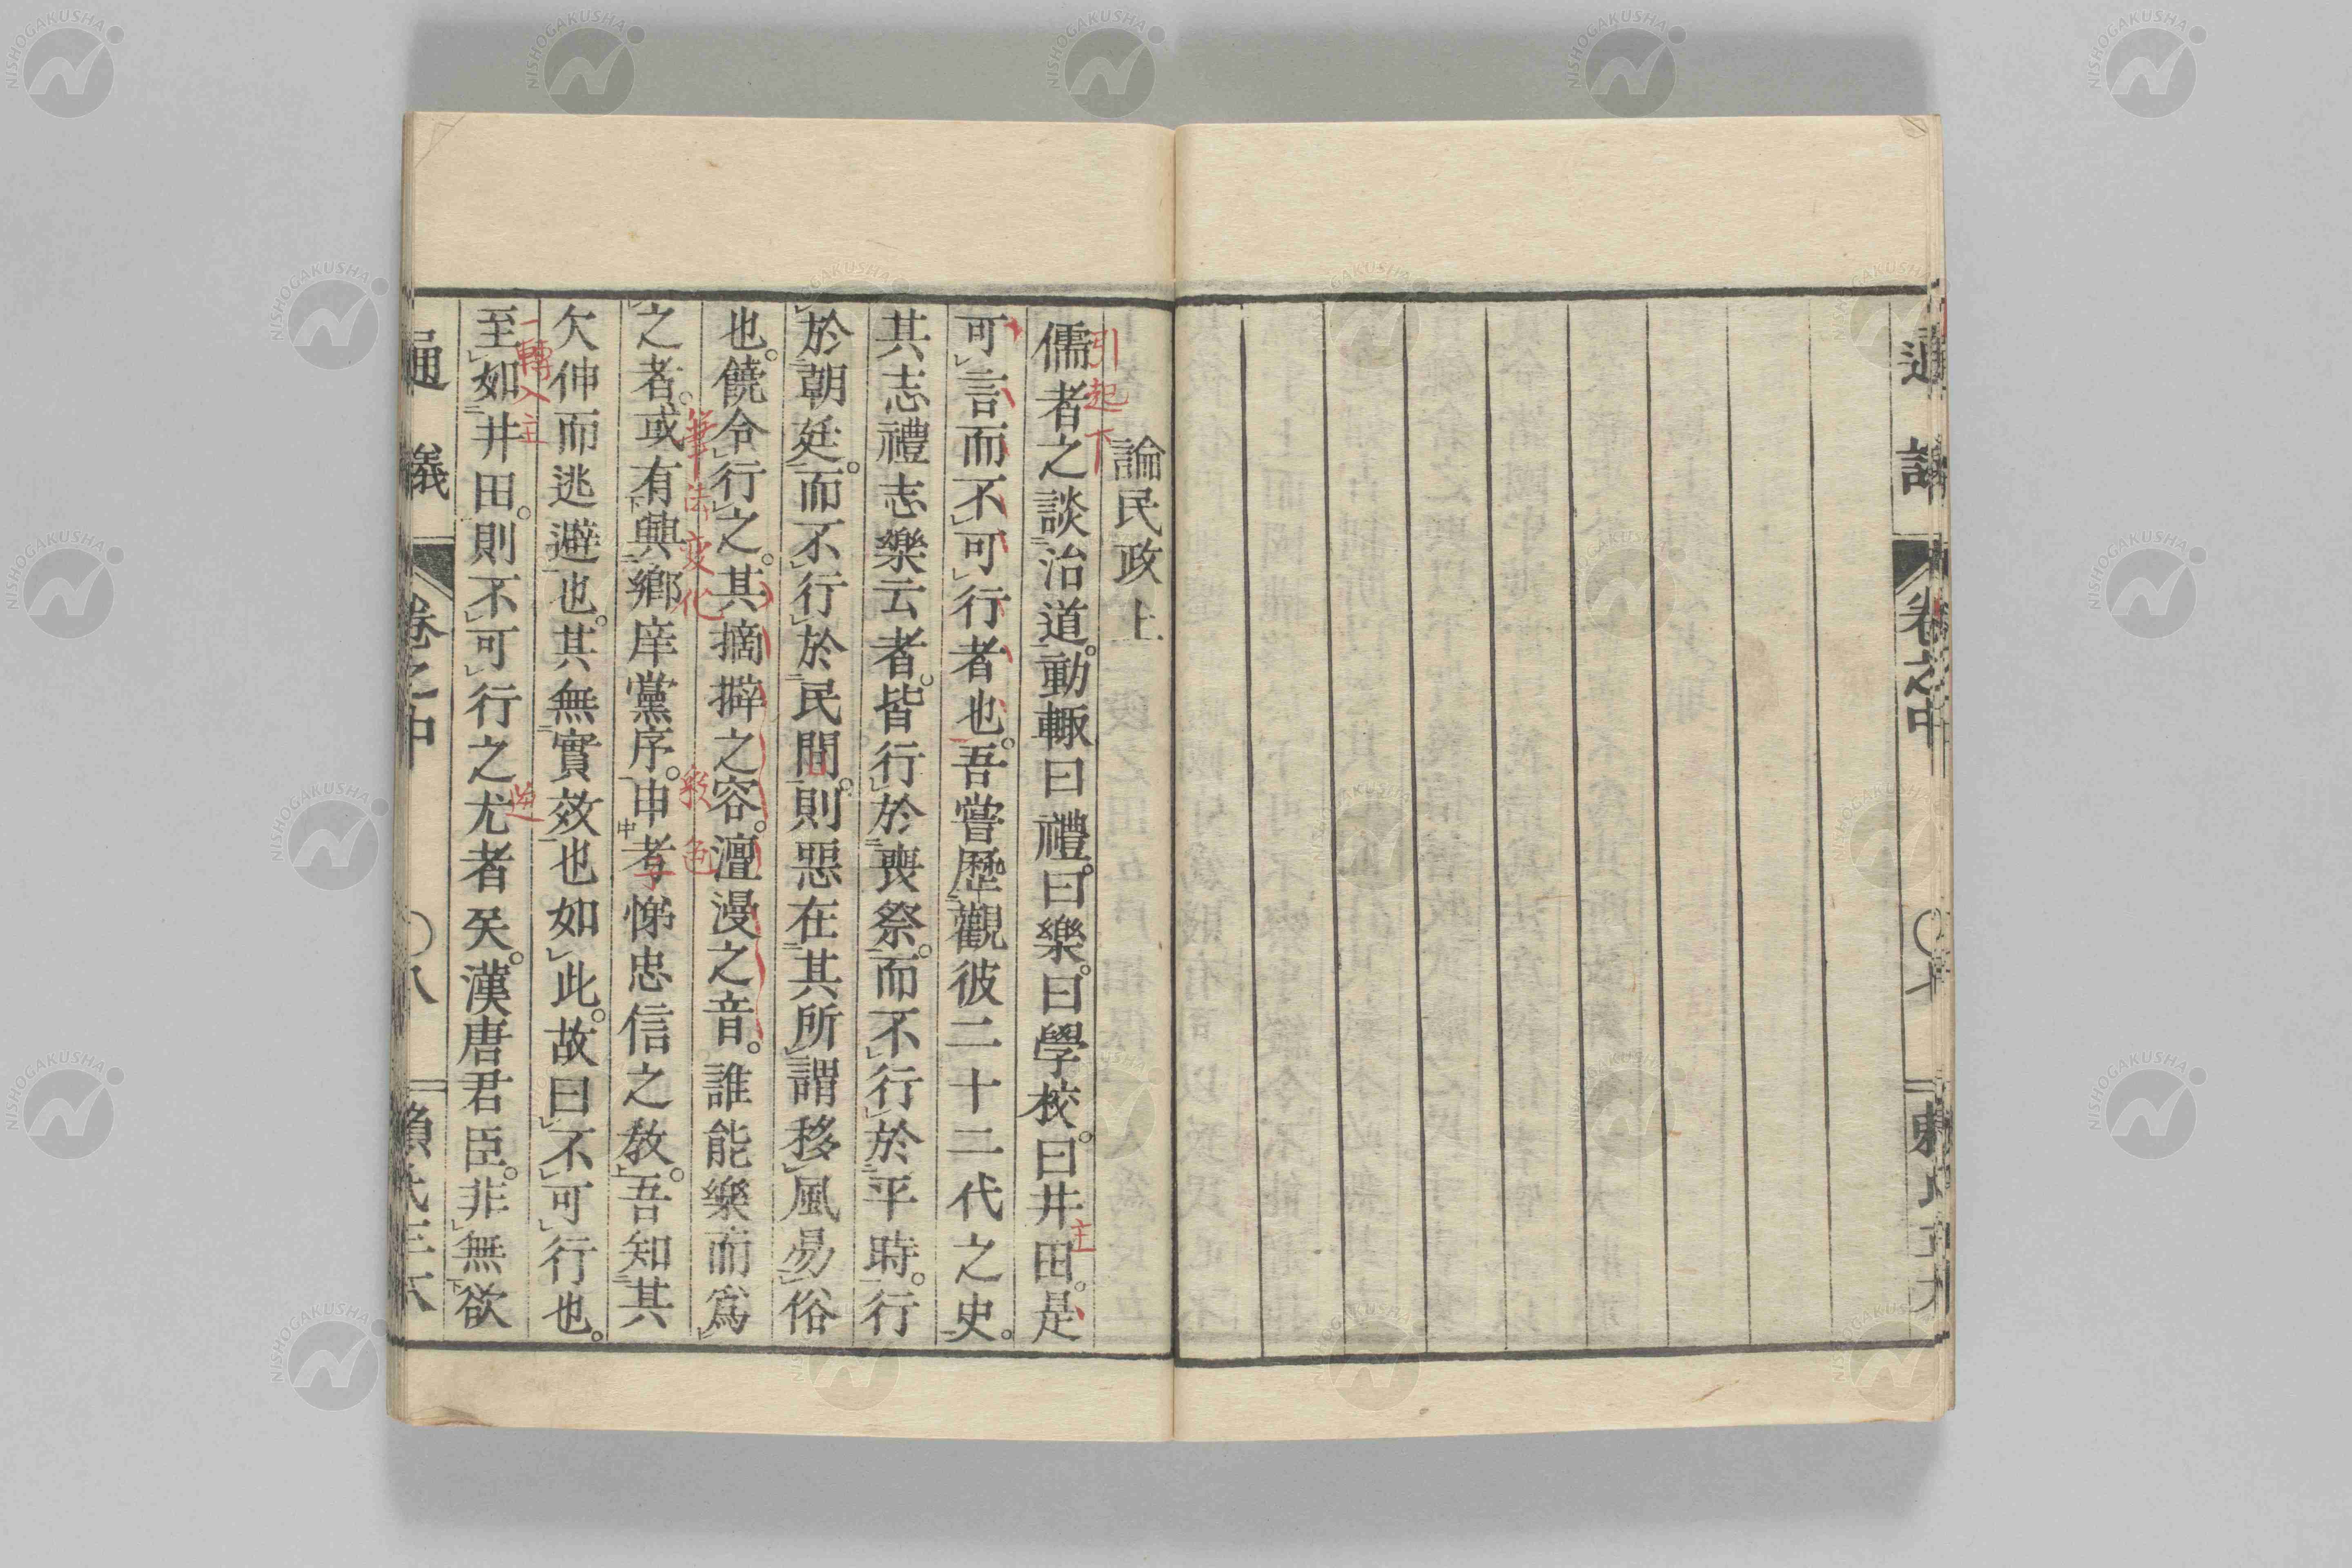 論民政上
儒者之談治道。動輙曰禮。曰樂。曰學校。曰井田。是
可言而不可行者也。吾嘗歷觀彼二十二代之史。
其志禮志樂云者。皆行於喪祭。而不行於平時。行
於朝廷。而不行於民間。則惡在其所謂移風易俗
也。饒令行之。其摘擗之容。澶漫之音。誰能樂而爲
之者。或有興鄉庠黨序。申孝悌忠信之敎。吾知其
欠伸而逃避也。其無實效也如此。故曰不可行也。
至如井田。則不可行之尤者矣。漢唐君臣。非無欲
通議
卷之中
八
引起下
主
筆法変化
一轉入主
通
卷之中
NISHOGAKUSHA